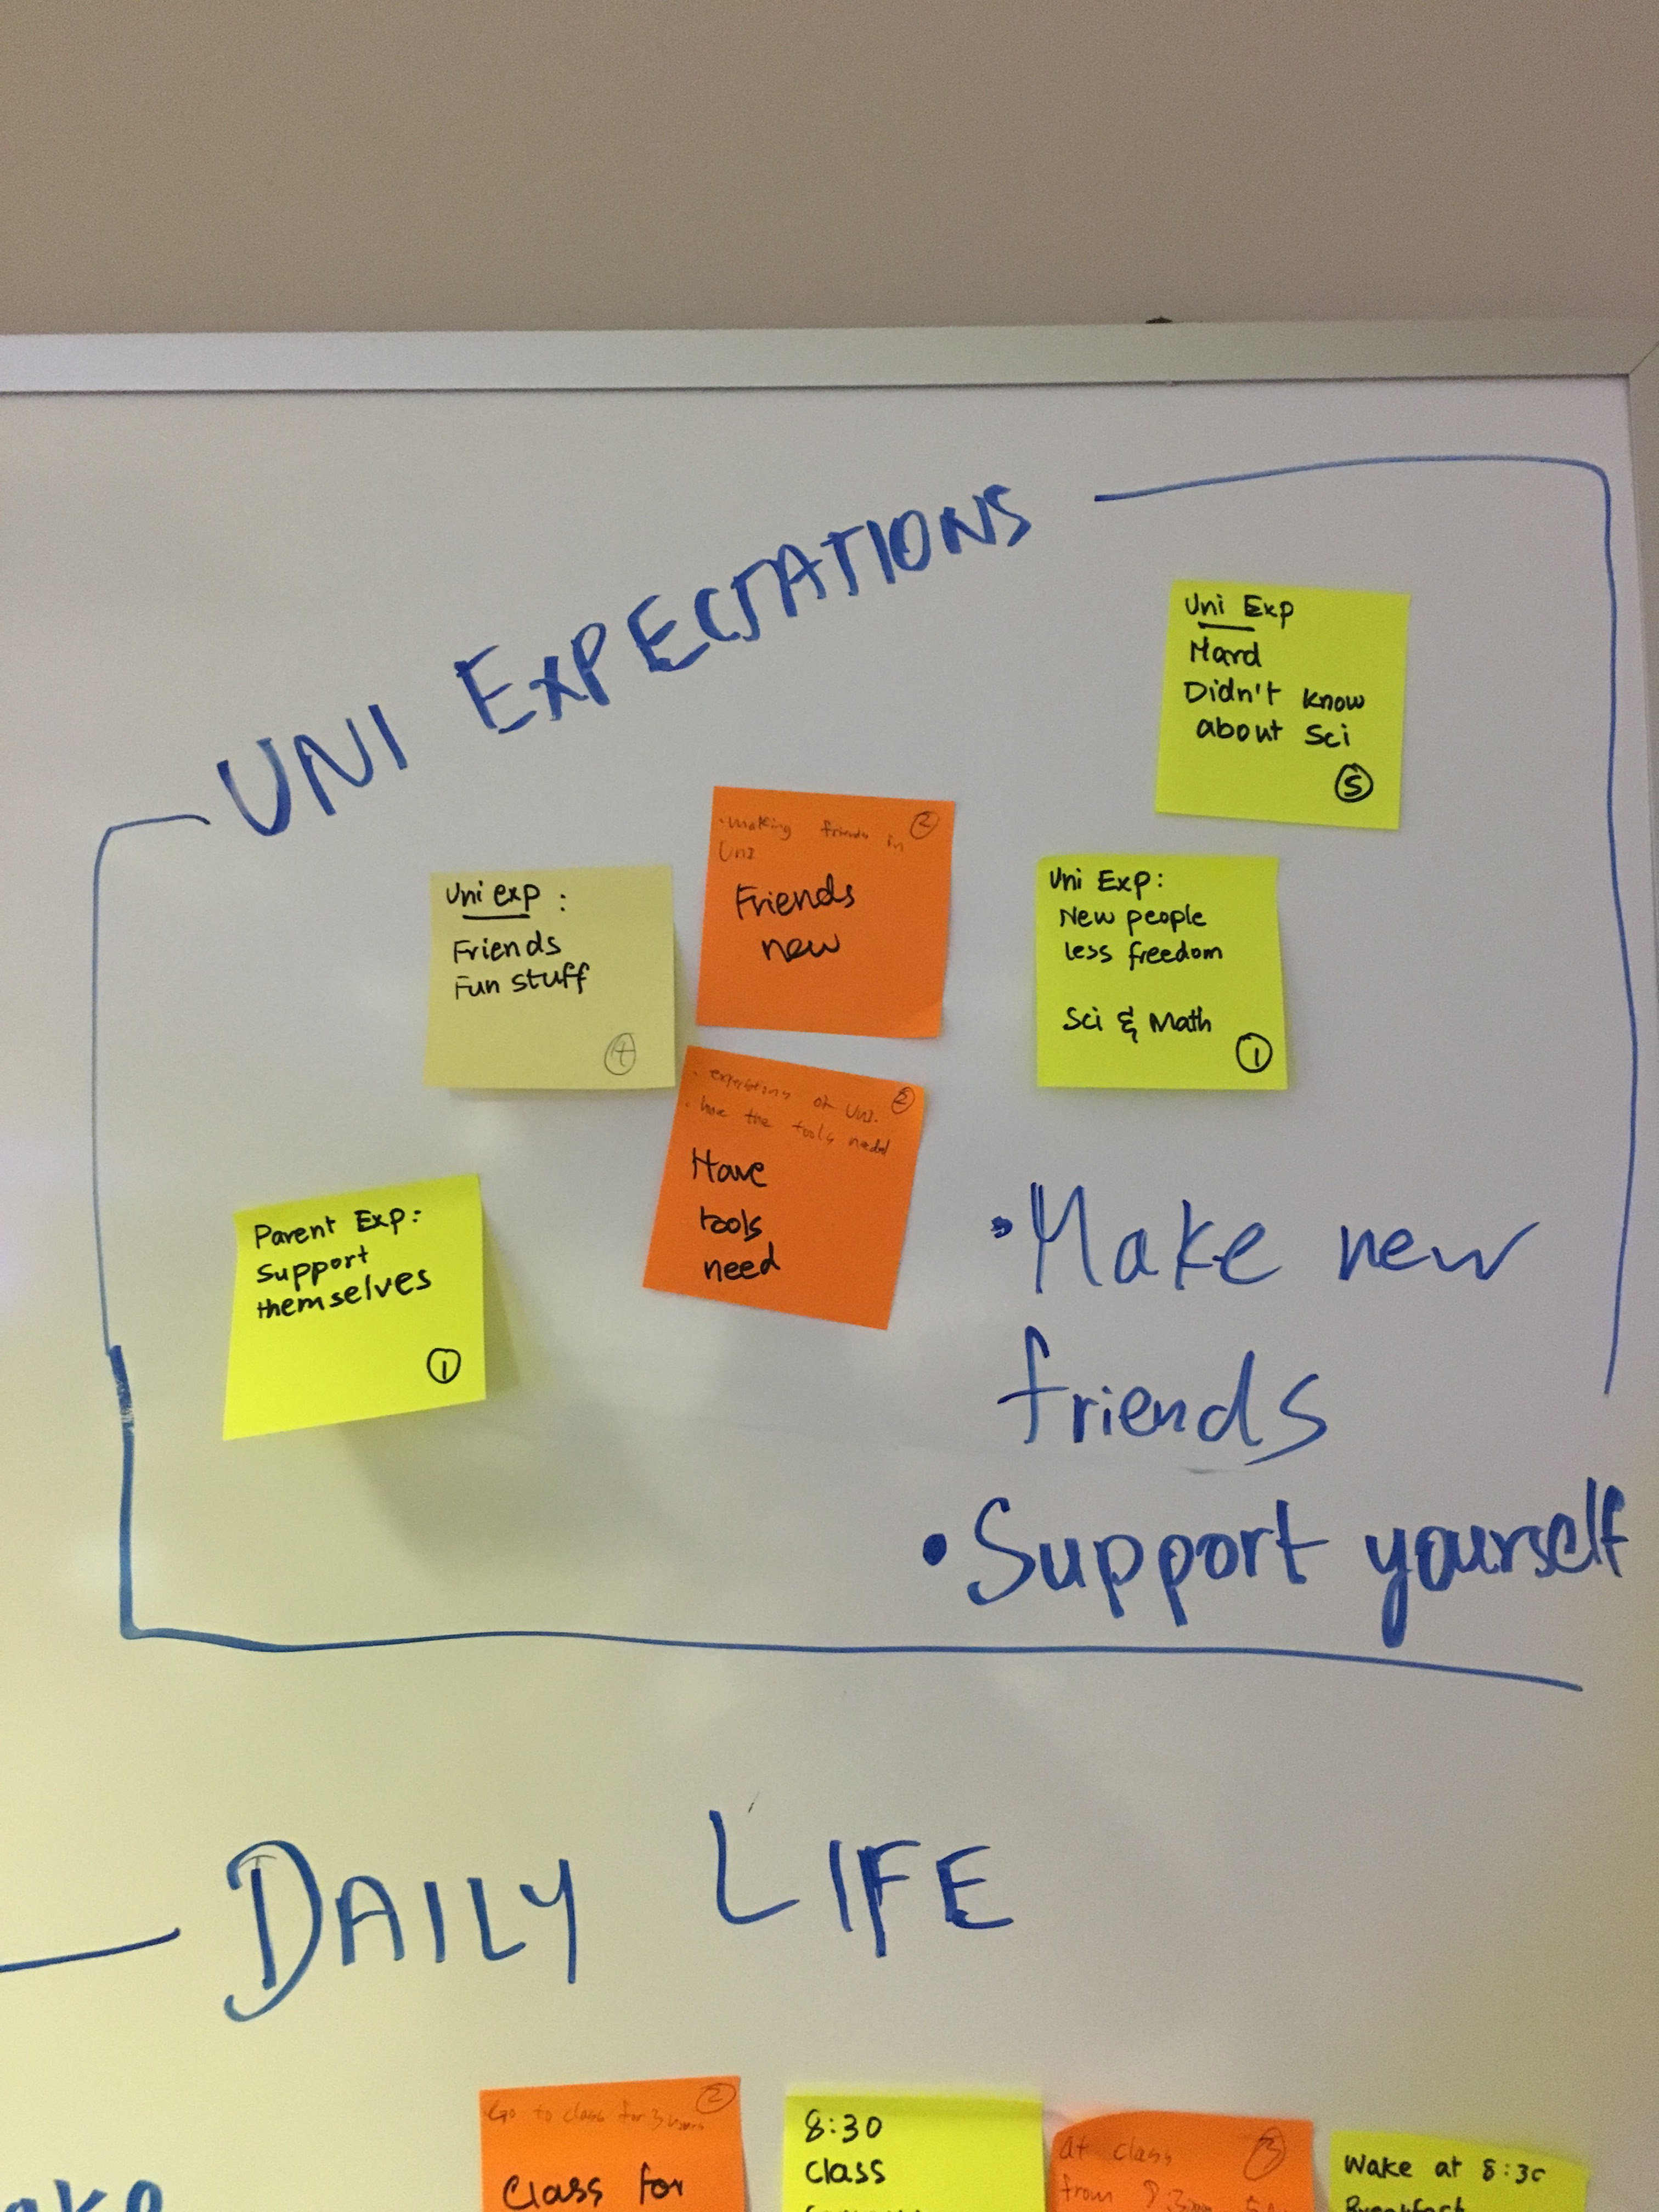 UNI EXPECTATIONS
Uni Exp
Hard
Didn't know
about Sci
5
Uni exp :
Friends
Fun stuff
4
making friends in
Uni
2
Friends
new
Uni Exp:
New people
less freedom
Sci & Math
1
of Uni.
2
have the tools need
Have
tools
need
Parent Exp:
Support
themselves
1
• Make new
friends
• Support yourself
DAILY LIFE
Go to class for 3 hours
2
Class for
8:30
Class
at class
from
Wake at 8:30
Breakfast